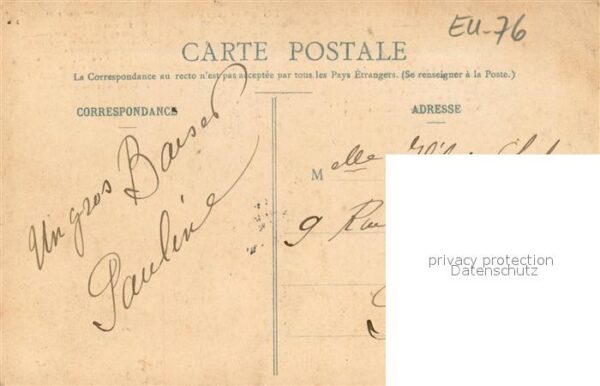 EU-76
CARTE POSTALE
La Correspondance au recto n'est pas acceptée par tous les Pays Étrangers. (Se renseigner à la Poste.)
CORRESPONDANCE
ADRESSE
Un gros Baiser
Pauline
Melle
9 Rue
privacy protection
Datenschutz